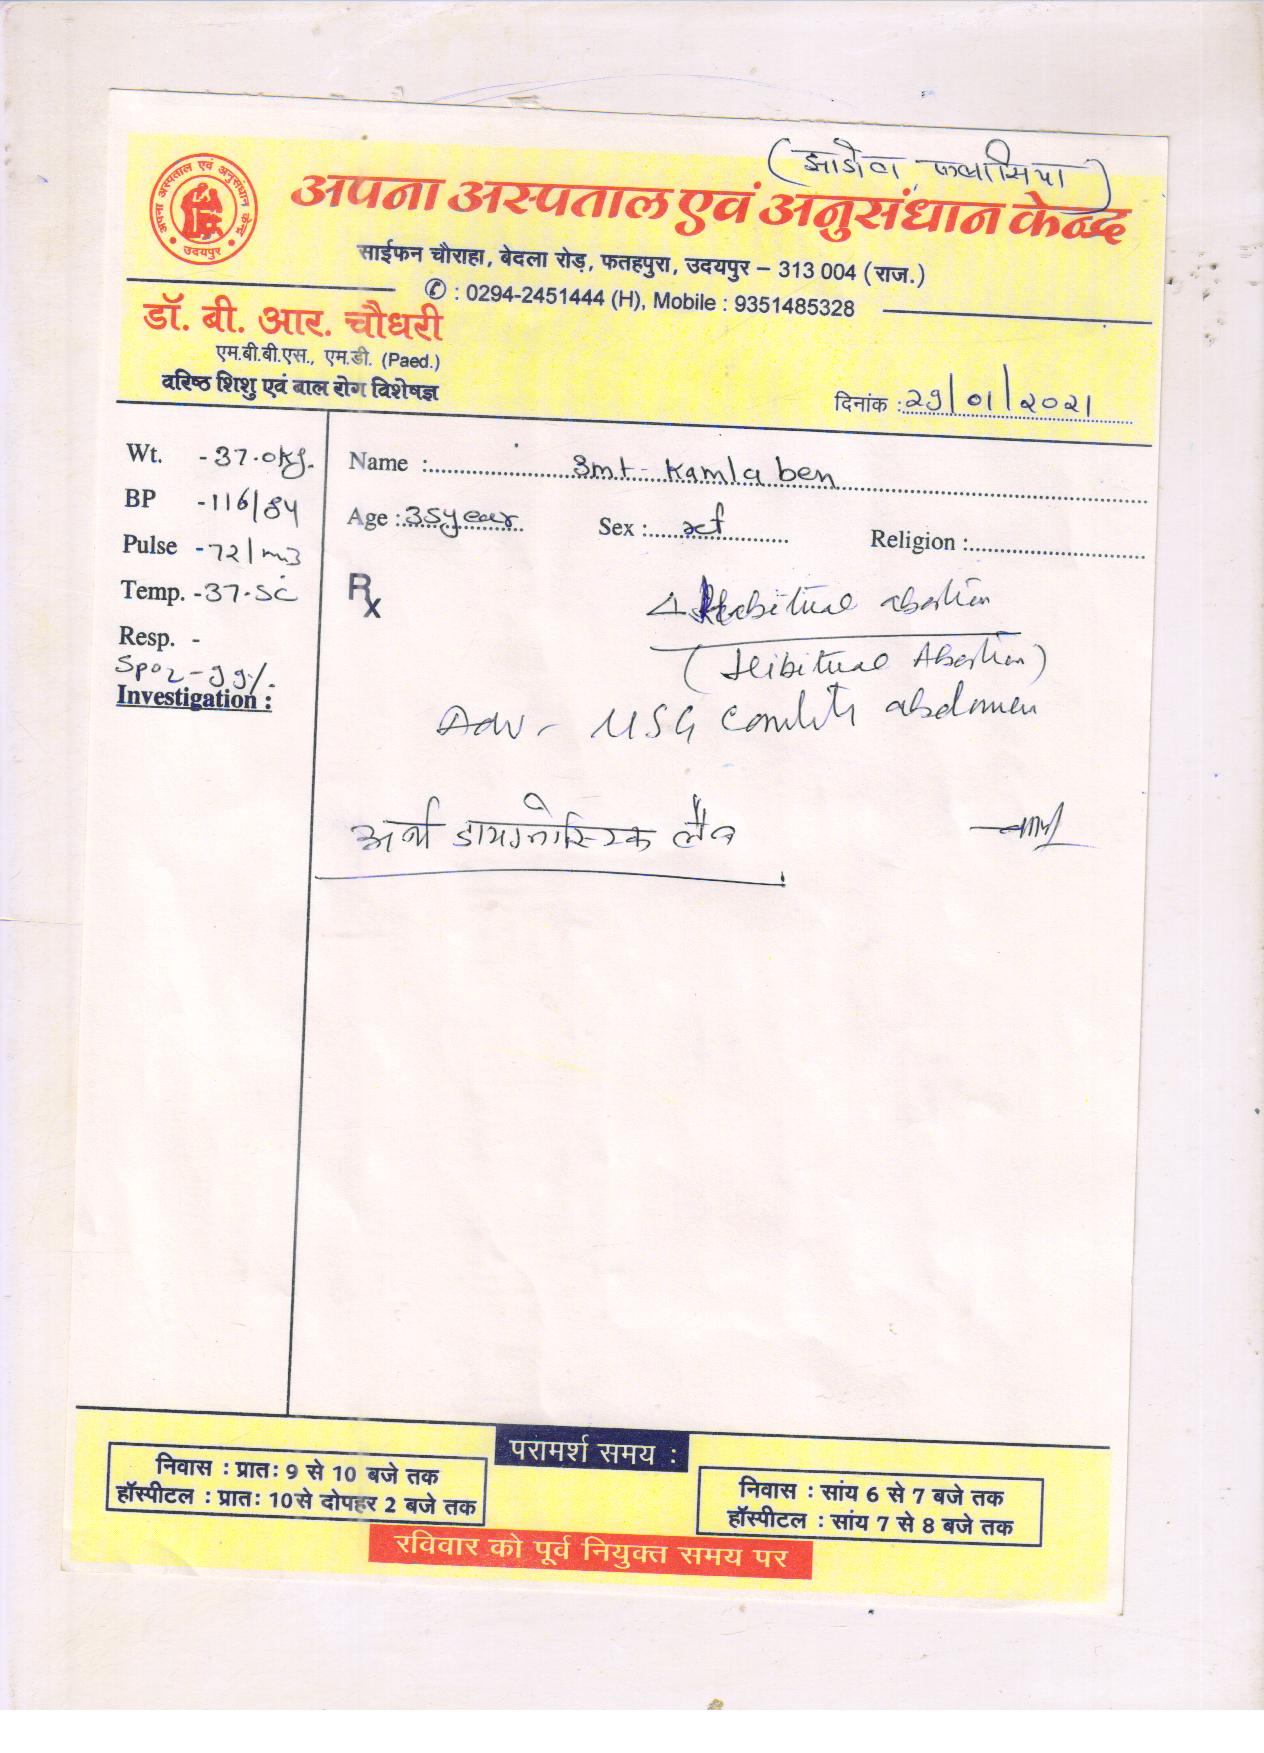 (झाडोल, फलासिया)
अपना अस्पताल एवं अनुसंधान केन्द्र
अपना अस्पताल एवं अनुसंधान केन्द्र
उदयपुर
साईफन चौराहा, बेदला रोड़, फतहपुरा, उदयपुर – 313 004 (राज.)
✆ : 0294-2451444 (H), Mobile : 9351485328
डॉ. बी. आर. चौधरी
एम.बी.बी.एस., एम.डी. (Paed.)
वरिष्ठ शिशु एवं बाल रोग विशेषज्ञ
दिनांक : 29/01/2021
Wt. - 37.0kg.
BP - 116/84
Pulse - 72/
Temp. - 37.5c
Resp. -
Spo2 - 99%.
Investigation :
Name : Smt. Kamla ben
Age : 35year Sex : Religion :
Rx
△ Habitual abortion
(Hibitual Abortion)
Adv - USG abdomen
अर्थ डायग्नोस्टिक लैब
परामर्श समय :
निवास : प्रातः 9 से 10 बजे तक
हॉस्पीटल : प्रातः 10 से दोपहर 2 बजे तक
निवास : सांय 6 से 7 बजे तक
हॉस्पीटल : सांय 7 से 8 बजे तक
रविवार को पूर्व नियुक्त समय पर